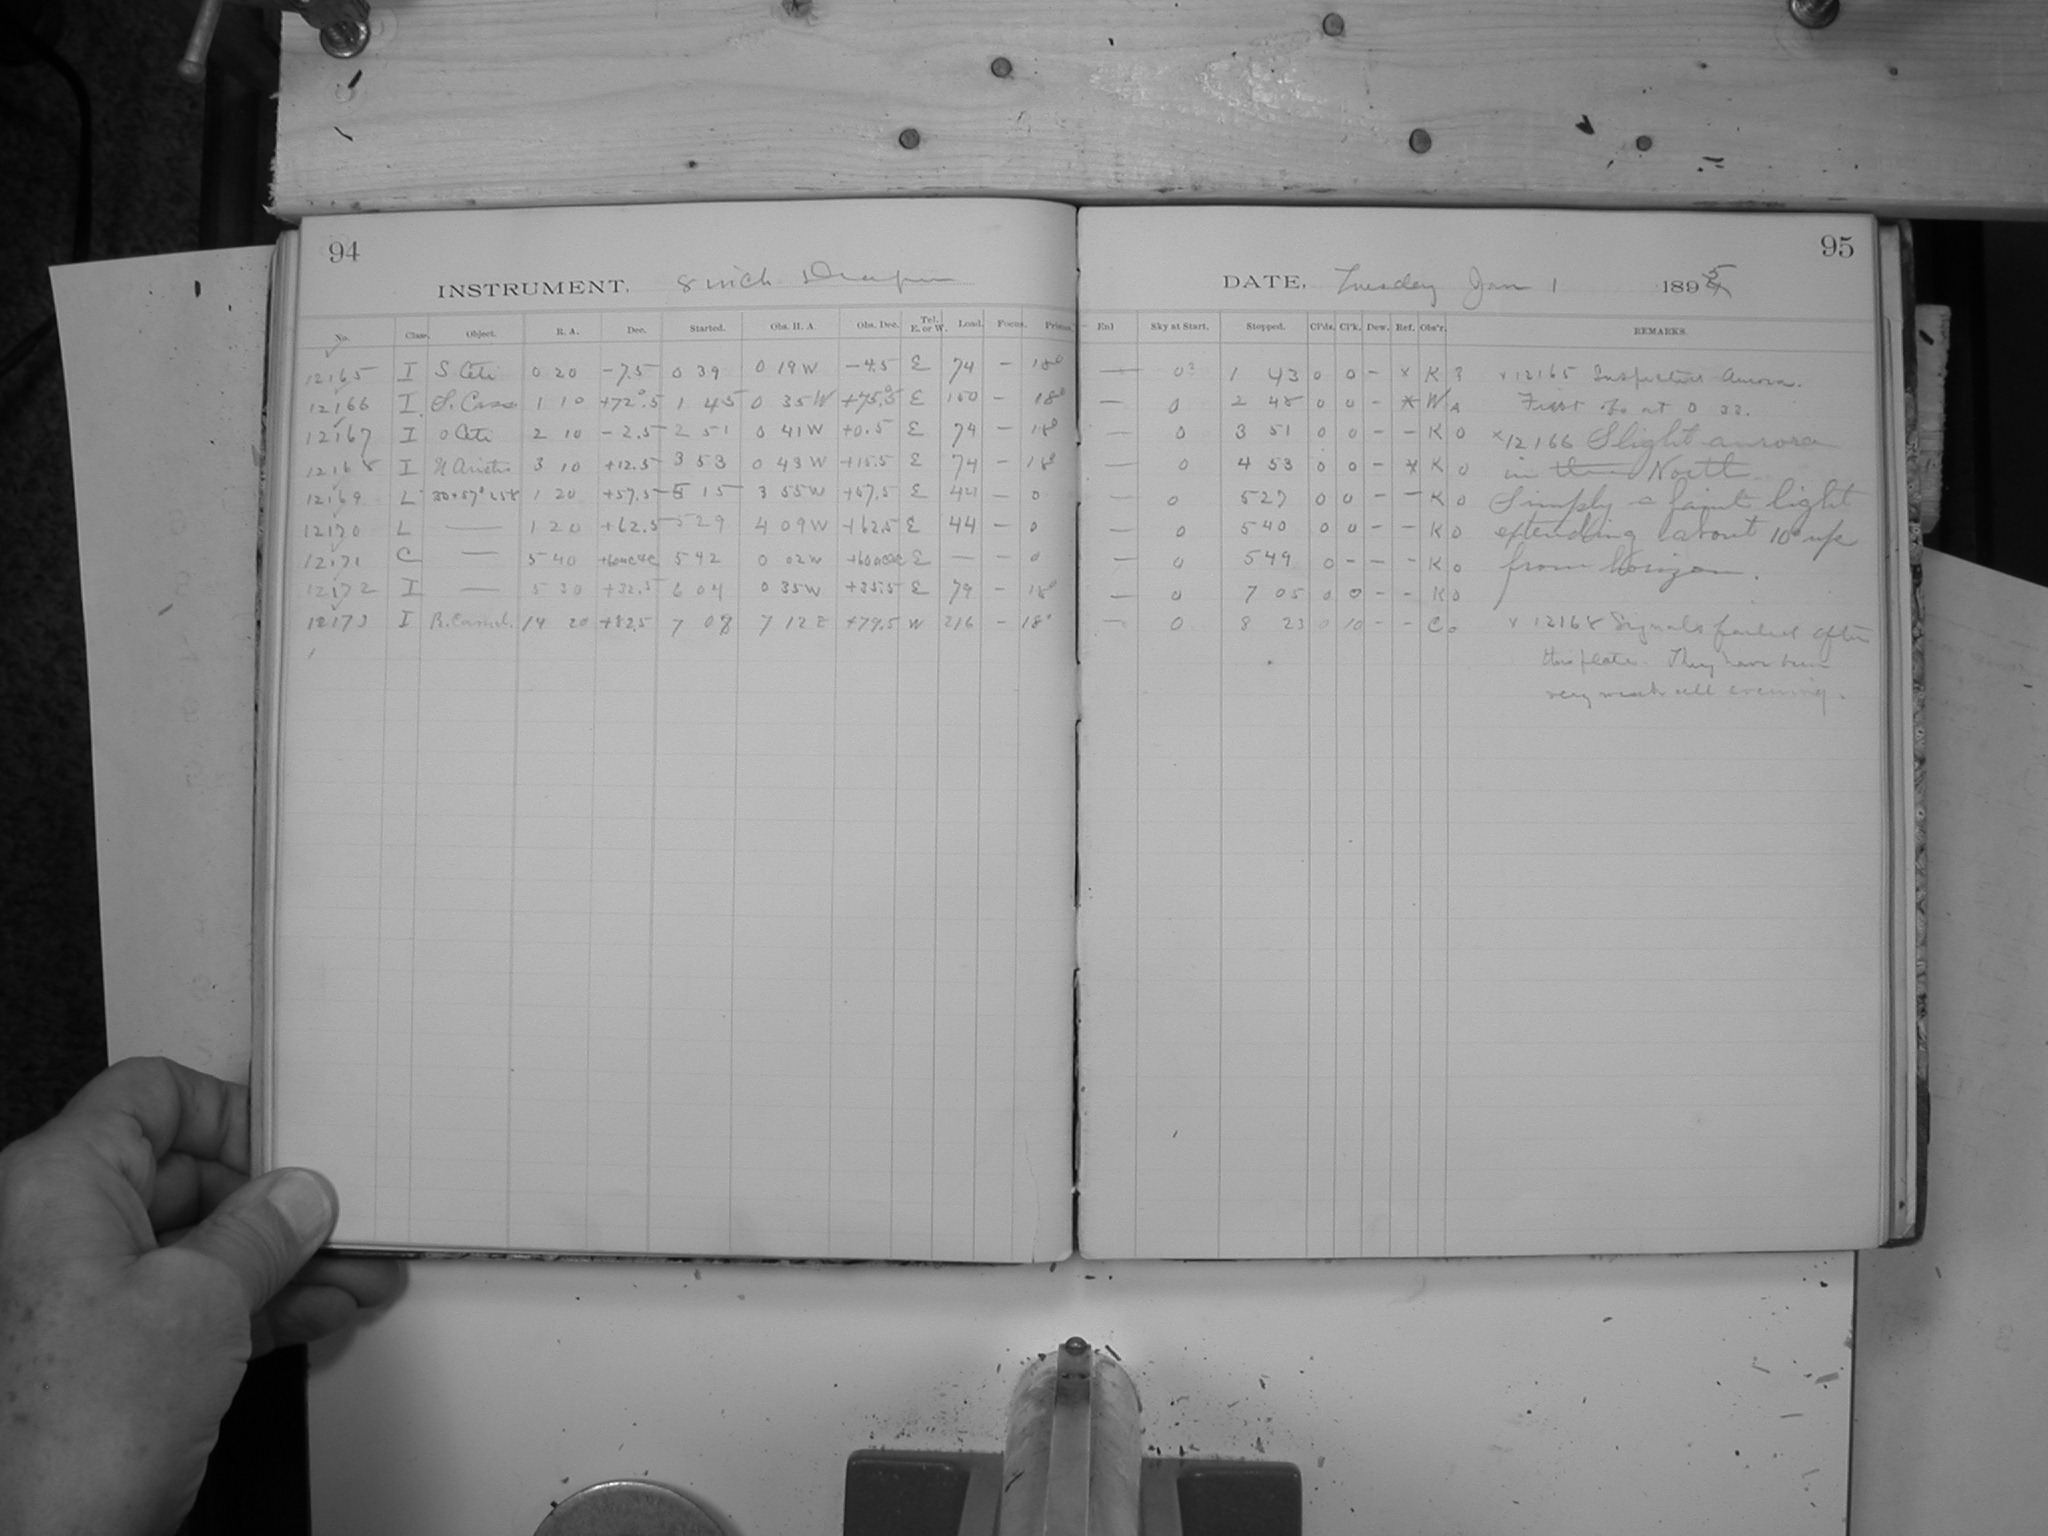 94
INSTRUMENT. 8 inch Draper
No. Class. Object. R. A. Dec. Started. Obs. H. A. Obs. Dec. Tel. E. or W. Load. Focus. Prisms.
12165 I S. Ceti 0 20 -7.5 0 39 0 19 W -4.5 E 74 - 18°
12166 I S. Cass 1 10 +72°.5 1 45 0 35 W +75.5° E 150 - 18°
12167 I o Ceti 2 10 -2.5 2 51 0 41 W +0.5 E 74 - 18°
12168 I Arietis 3 10 +12.5 3 53 0 43 W +15.5 E 74 - 18°
12169 L 1 20 +57.5 5 15 3 55 W +57.5 E 44 - 0
12170 L — 1 20 +62.5 5 29 4 09 W +62.5 E 44 - 0
12171 C — 5 40 5 42 0 02 W E — - 0
12172 I — 5 30 +32.5 6 04 0 35 W +35.5 E 79 - 18°
12173 I R. Camel. 14 20 +82.5 7 08 7 12 E +79.5 W 216 - 18°
95
DATE. Tuesday Jan 1 1895
Enl Sky at Start. Stopped. Cl'ds. Cl'k. Dew. Ref. Obs'r. REMARKS.
— 0? 1 43 0 0 - x K ? x 12165 Aurora.
— 0 2 48 0 0 - x W A First at 0
— 0 3 51 0 0 - - K 0 x 12166 Slight aurora
— 0 4 53 0 0 - x K 0 in the North
— 0 5 27 0 0 - - K 0 Simply a faint light
— 0 5 40 0 0 - - K 0 extending about 10° up
— 0 5 49 0 - - - K 0 from horizon.
— 0 7 05 0 0 - - K 0
— 0 8 23 0 10 - - C 0 x 12168 Signals failed after
this plate. They have been
very weak all evening.